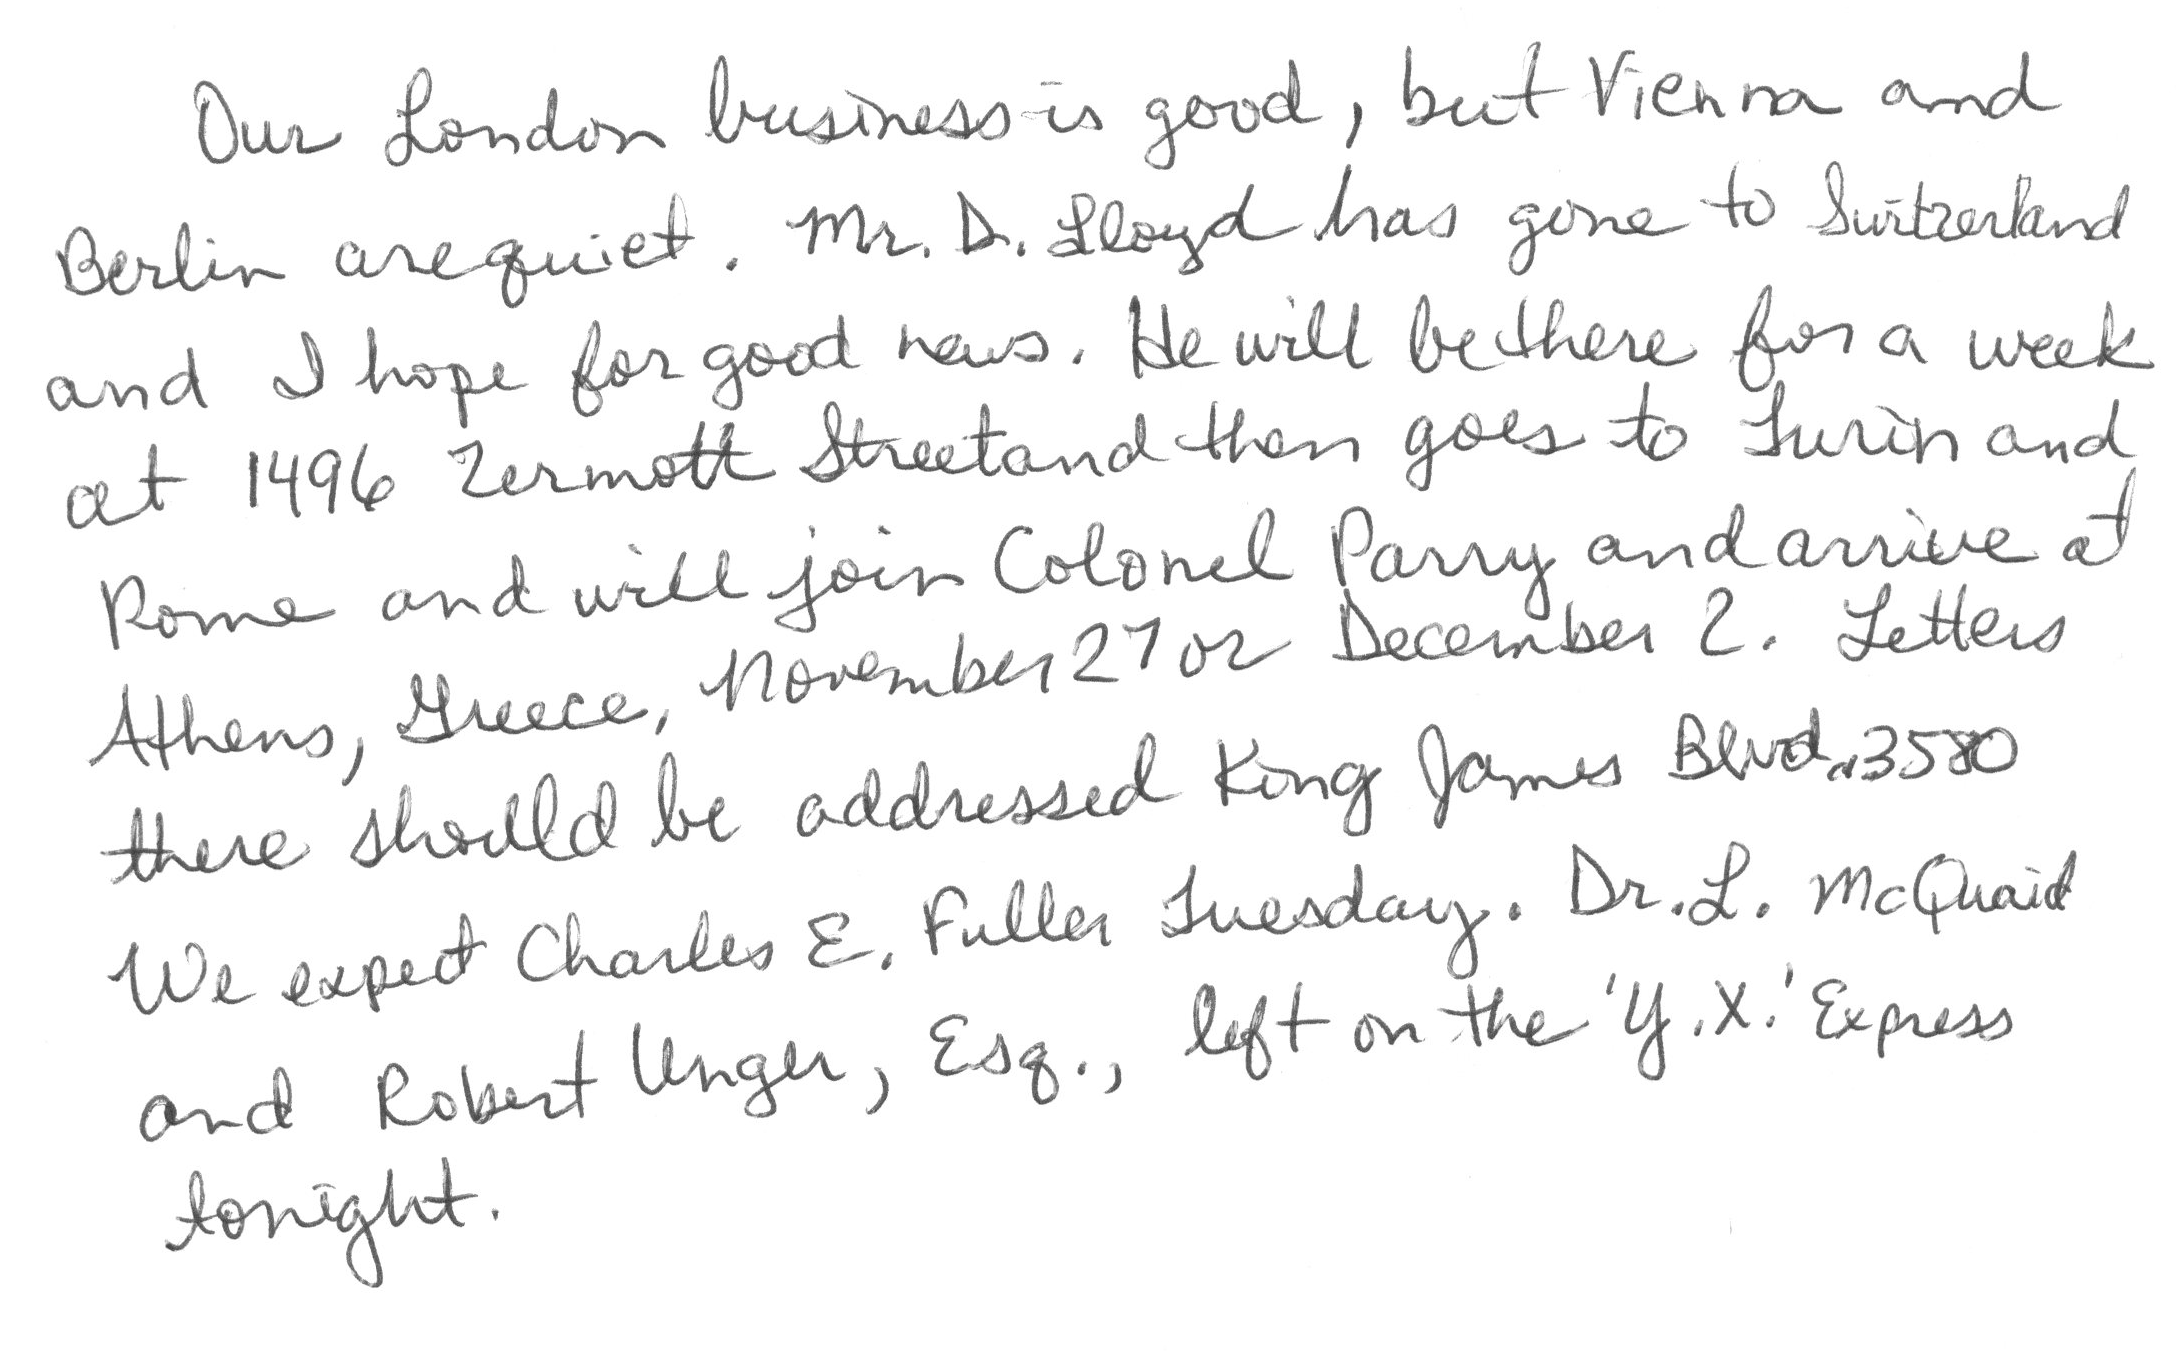 Our London business is good, but Vienna and
Berlin are quiet. Mr. D. Lloyd has gone to Switzerland
and I hope for good news. He will be there for a week
at 1496 Zermott Street and then goes to Turin and
Rome and will join Colonel Parry and arrive at
Athens, Greece, November 27 or December 2. Letters
there should be addressed King James Blvd. 3580
We expect Charles E. Fuller Tuesday. Dr. L. McQuaid
and Robert Unger, Esq., left on the 'Y.X.' Express
tonight.